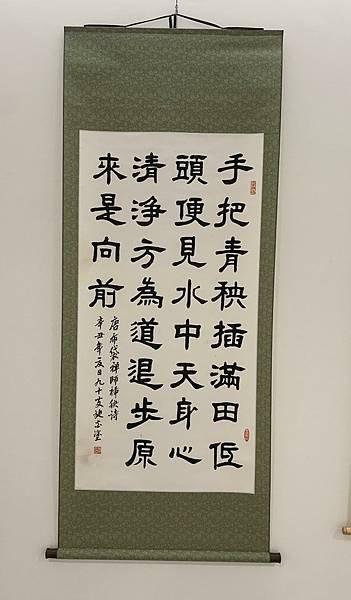 手把青秧插滿田低
頭便見水中天身心
清淨方為道退步原
來是向前
唐布袋禪師插秧詩
辛丑年夏日九十叟